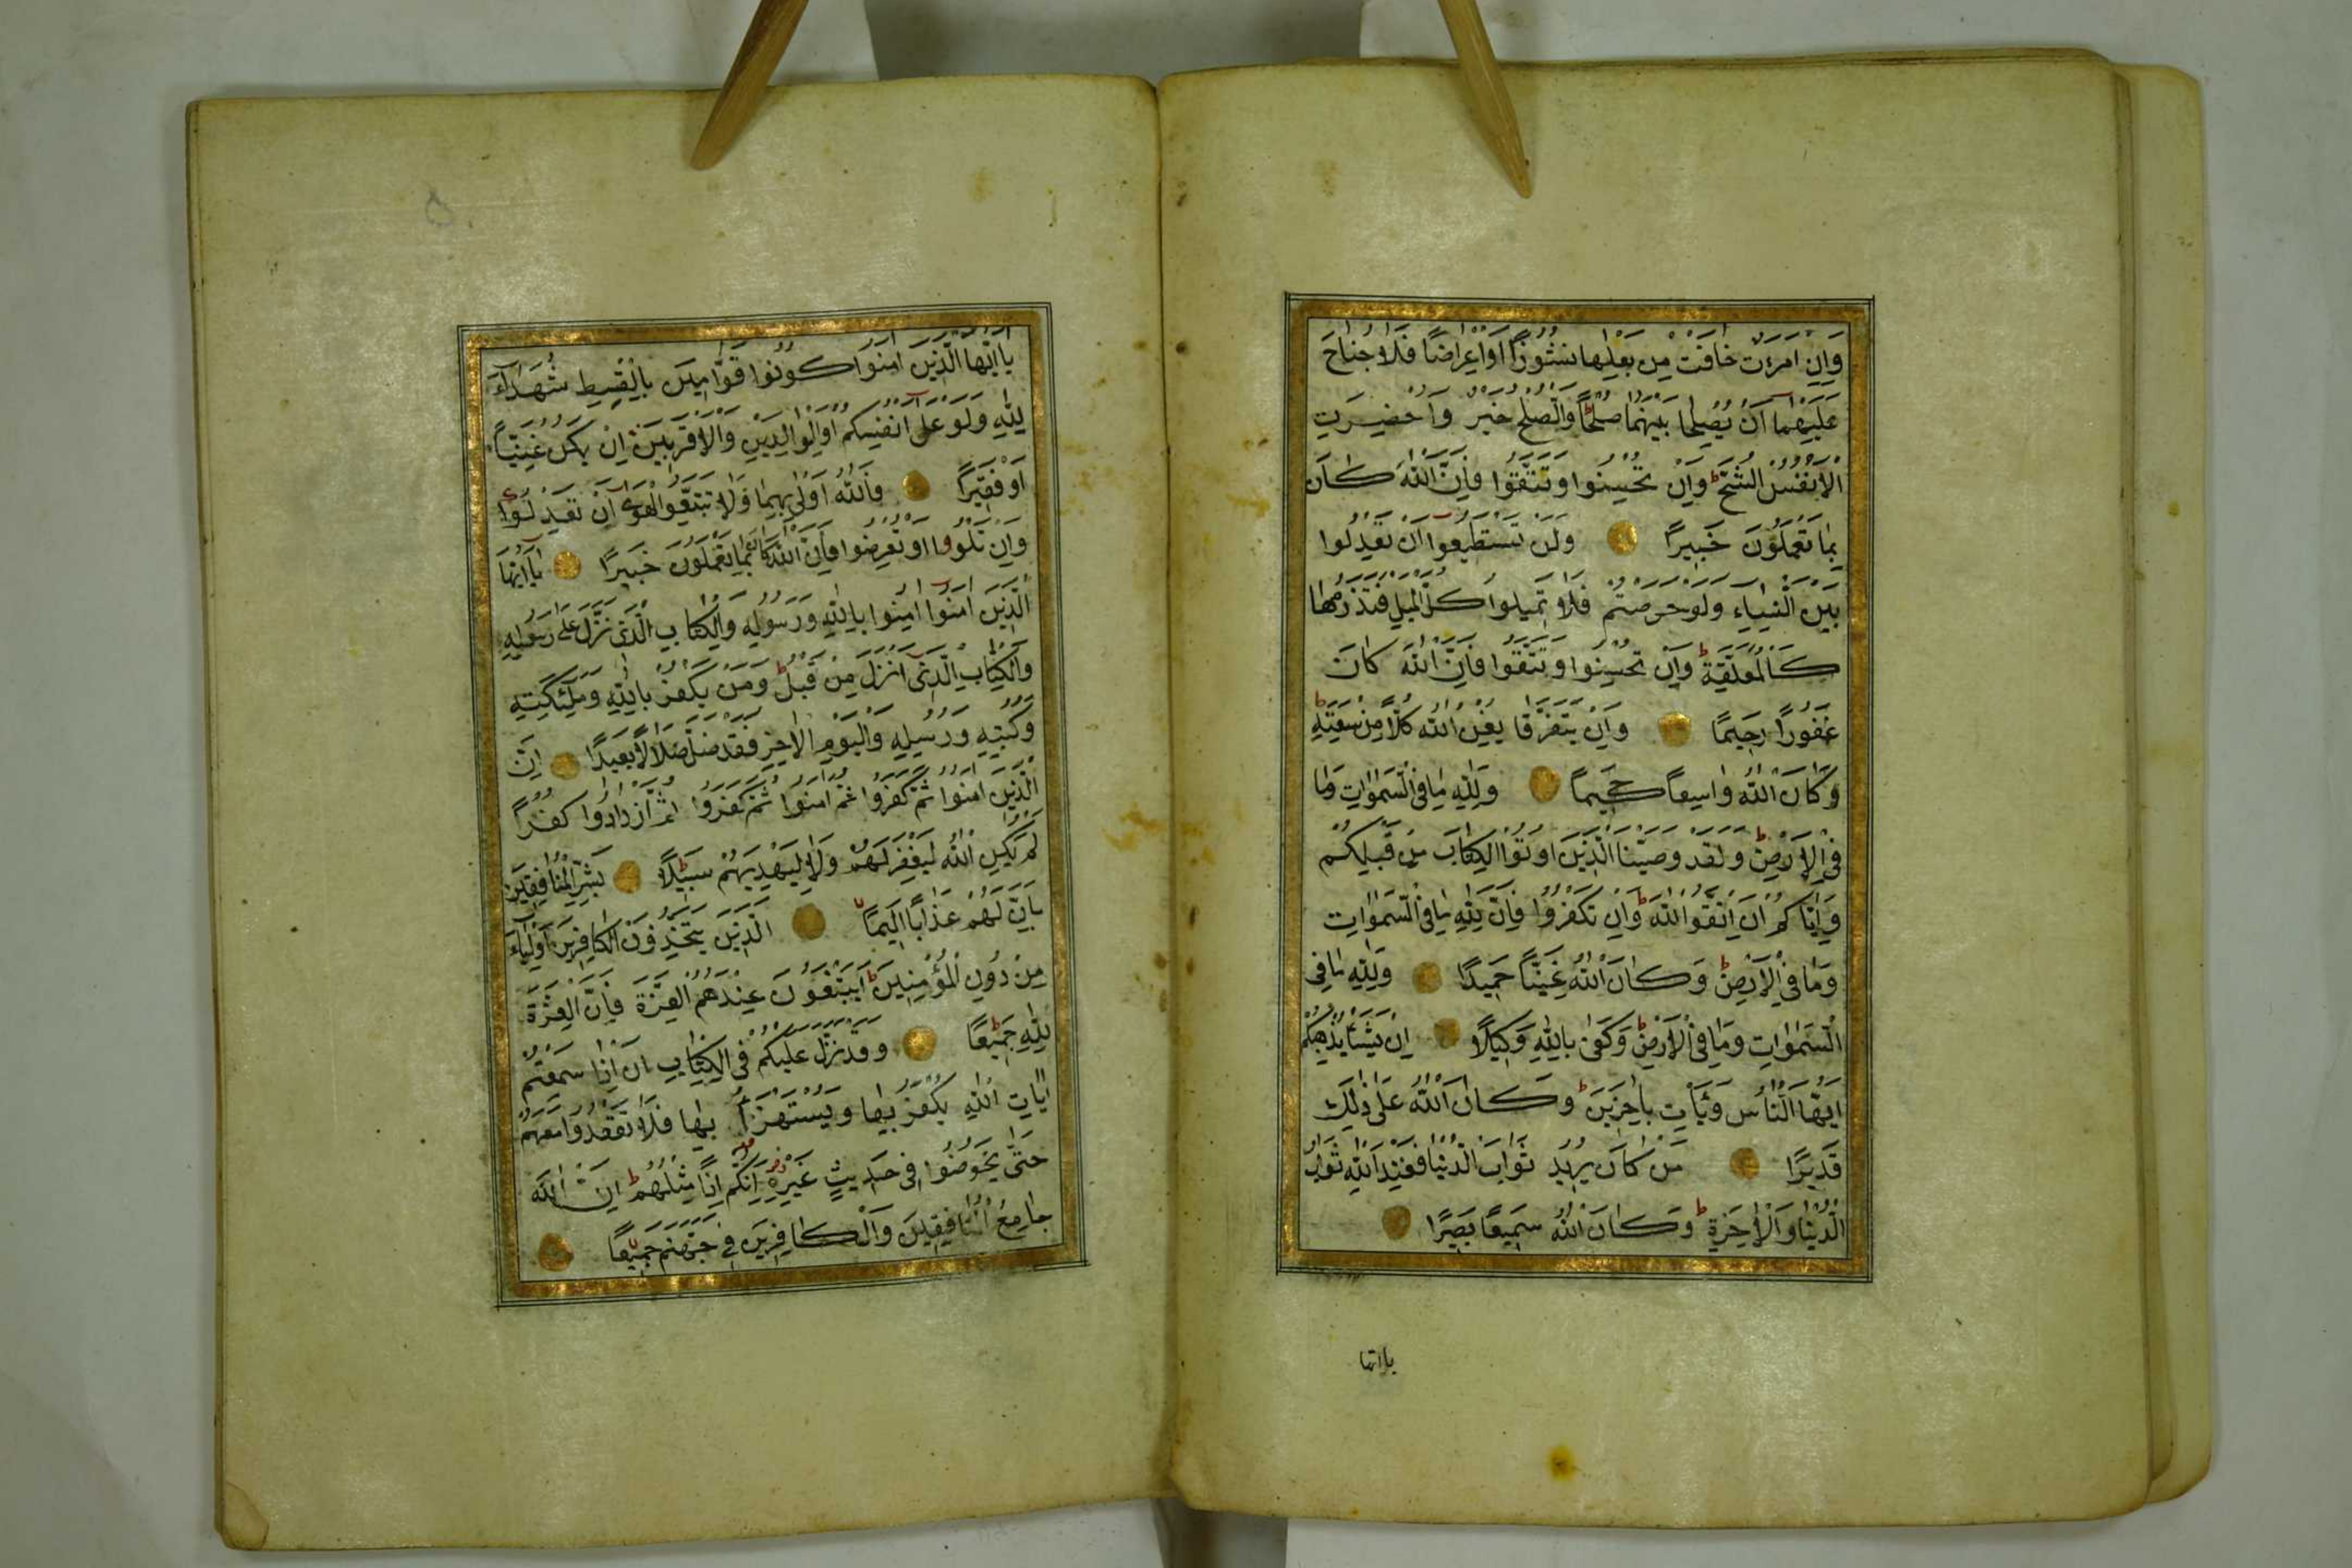 وَاِنِ امْرَءَتٌ خَافَتْ مِنْ بَعْلِهَا نُشُوزًا اَوْ اِعْرَاضًا فَلَا جُنَاحَ
عَلَيْهِمَا اَنْ يُصْلِحَا بَيْنَهُمَا صُلْحًا ط وَالصُّلْحُ خَيْرٌ وَاُحْضِرَتِ
الْاَنْفُسُ الشُّحَّ ط وَاِنْ تُحْسِنُوا وَتَتَّقُوا فَاِنَّ اللّٰهَ كَانَ
بِمَا تَعْمَلُونَ خَبِيرًا وَلَنْ تَسْتَطِيعُوا اَنْ تَعْدِلُوا
بَيْنَ النِّسَاءِ وَلَوْ حَرَصْتُمْ فَلَا تَمِيلُوا كُلَّ الْمَيْلِ فَتَذَرُوهَا
كَالْمُعَلَّقَةِ ط وَاِنْ تُحْسِنُوا وَتَتَّقُوا فَاِنَّ اللّٰهَ كَانَ
غَفُورًا رَحِيمًا وَاِنْ يَتَفَرَّقَا يُغْنِ اللّٰهُ كُلًّا مِنْ سَعَتِهِ ط
وَكَانَ اللّٰهُ وَاسِعًا حَكِيمًا وَلِلّٰهِ مَا فِي السَّمٰوَاتِ وَمَا
فِي الْاَرْضِ ط وَلَقَدْ وَصَّيْنَا الَّذِينَ اُوتُوا الْكِتَابَ مِنْ قَبْلِكُمْ
وَاِيَّاكُمْ اَنِ اتَّقُوا اللّٰهَ ط وَاِنْ تَكْفُرُوا فَاِنَّ لِلّٰهِ مَا فِي السَّمٰوَاتِ
وَمَا فِي الْاَرْضِ ط وَكَانَ اللّٰهُ غَنِيًّا حَمِيدًا وَلِلّٰهِ مَا فِي
السَّمٰوَاتِ وَمَا فِي الْاَرْضِ ط وَكَفٰى بِاللّٰهِ وَكِيلًا اِنْ يَشَأْ يُذْهِبْكُمْ
اَيُّهَا النَّاسُ وَيَأْتِ بِاٰخَرِينَ ط وَكَانَ اللّٰهُ عَلٰى ذٰلِكَ
قَدِيرًا مَنْ كَانَ يُرِيدُ ثَوَابَ الدُّنْيَا فَعِنْدَ اللّٰهِ ثَوَابُ
الدُّنْيَا وَالْاٰخِرَةِ ط وَكَانَ اللّٰهُ سَمِيعًا بَصِيرًا
يا ايها
يَا اَيُّهَا الَّذِينَ اٰمَنُوا كُونُوا قَوَّامِينَ بِالْقِسْطِ شُهَدَاءَ
لِلّٰهِ وَلَوْ عَلٰى اَنْفُسِكُمْ اَوِ الْوَالِدَيْنِ وَالْاَقْرَبِينَ اِنْ يَكُنْ غَنِيًّا
اَوْ فَقِيرًا فَاللّٰهُ اَوْلٰى بِهِمَا فَلَا تَتَّبِعُوا الْهَوٰى اَنْ تَعْدِلُوا
وَاِنْ تَلْوُوا اَوْ تُعْرِضُوا فَاِنَّ اللّٰهَ كَانَ بِمَا تَعْمَلُونَ خَبِيرًا يَا اَيُّهَا
الَّذِينَ اٰمَنُوا اٰمِنُوا بِاللّٰهِ وَرَسُولِهِ وَالْكِتَابِ الَّذِي نَزَّلَ عَلٰى رَسُولِهِ
وَالْكِتَابِ الَّذِي اَنْزَلَ مِنْ قَبْلُ ط وَمَنْ يَكْفُرْ بِاللّٰهِ وَمَلٰئِكَتِهِ
وَكُتُبِهِ وَرُسُلِهِ وَالْيَوْمِ الْاٰخِرِ فَقَدْ ضَلَّ ضَلَالًا بَعِيدًا اِنَّ
الَّذِينَ اٰمَنُوا ثُمَّ كَفَرُوا ثُمَّ اٰمَنُوا ثُمَّ كَفَرُوا ثُمَّ ازْدَادُوا كُفْرًا
لَمْ يَكُنِ اللّٰهُ لِيَغْفِرَ لَهُمْ وَلَا لِيَهْدِيَهُمْ سَبِيلًا بَشِّرِ الْمُنَافِقِينَ
بِاَنَّ لَهُمْ عَذَابًا اَلِيمًا الَّذِينَ يَتَّخِذُونَ الْكَافِرِينَ اَوْلِيَاءَ
مِنْ دُونِ الْمُؤْمِنِينَ ط اَيَبْتَغُونَ عِنْدَهُمُ الْعِزَّةَ فَاِنَّ الْعِزَّةَ
لِلّٰهِ جَمِيعًا وَقَدْ نَزَّلَ عَلَيْكُمْ فِي الْكِتَابِ اَنْ اِذَا سَمِعْتُمْ
اٰيَاتِ اللّٰهِ يُكْفَرُ بِهَا وَيُسْتَهْزَأُ بِهَا فَلَا تَقْعُدُوا مَعَهُمْ
حَتّٰى يَخُوضُوا فِي حَدِيثٍ غَيْرِهِ اِنَّكُمْ اِذًا مِثْلُهُمْ ط اِنَّ اللّٰهَ
جَامِعُ الْمُنَافِقِينَ وَالْكَافِرِينَ فِي جَهَنَّمَ جَمِيعًا